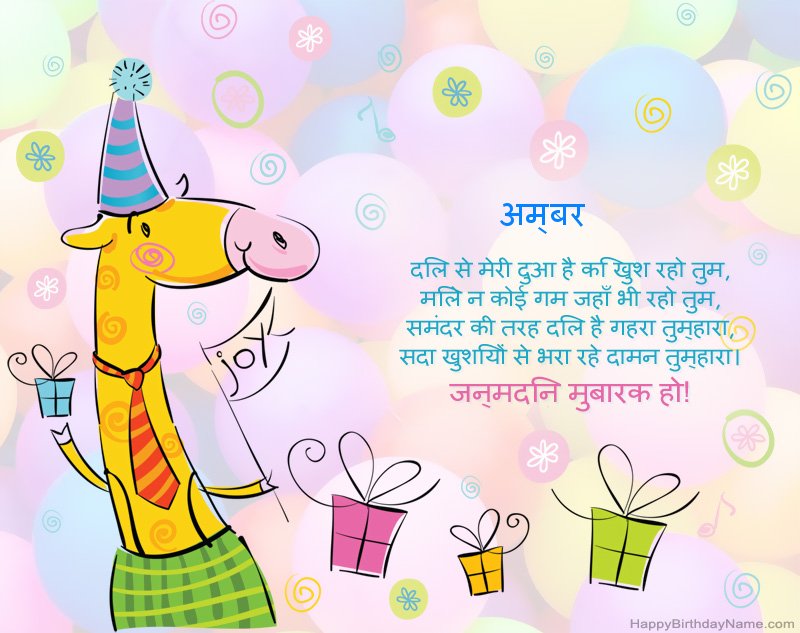 अम्‌बर
दलि से मेरी दुआ है क खिुश रहो तुम,
मलिे न कोई गम जहाँ भी रहो तुम,
समंदर की तरह दलि है गहरा तुम्‌हारा,
सदा खुशयिों से भरा रहे दामन तुम्‌हारा।
जन्‌मदनि मुबारक हो!
joy
HappyBirthdayName.com